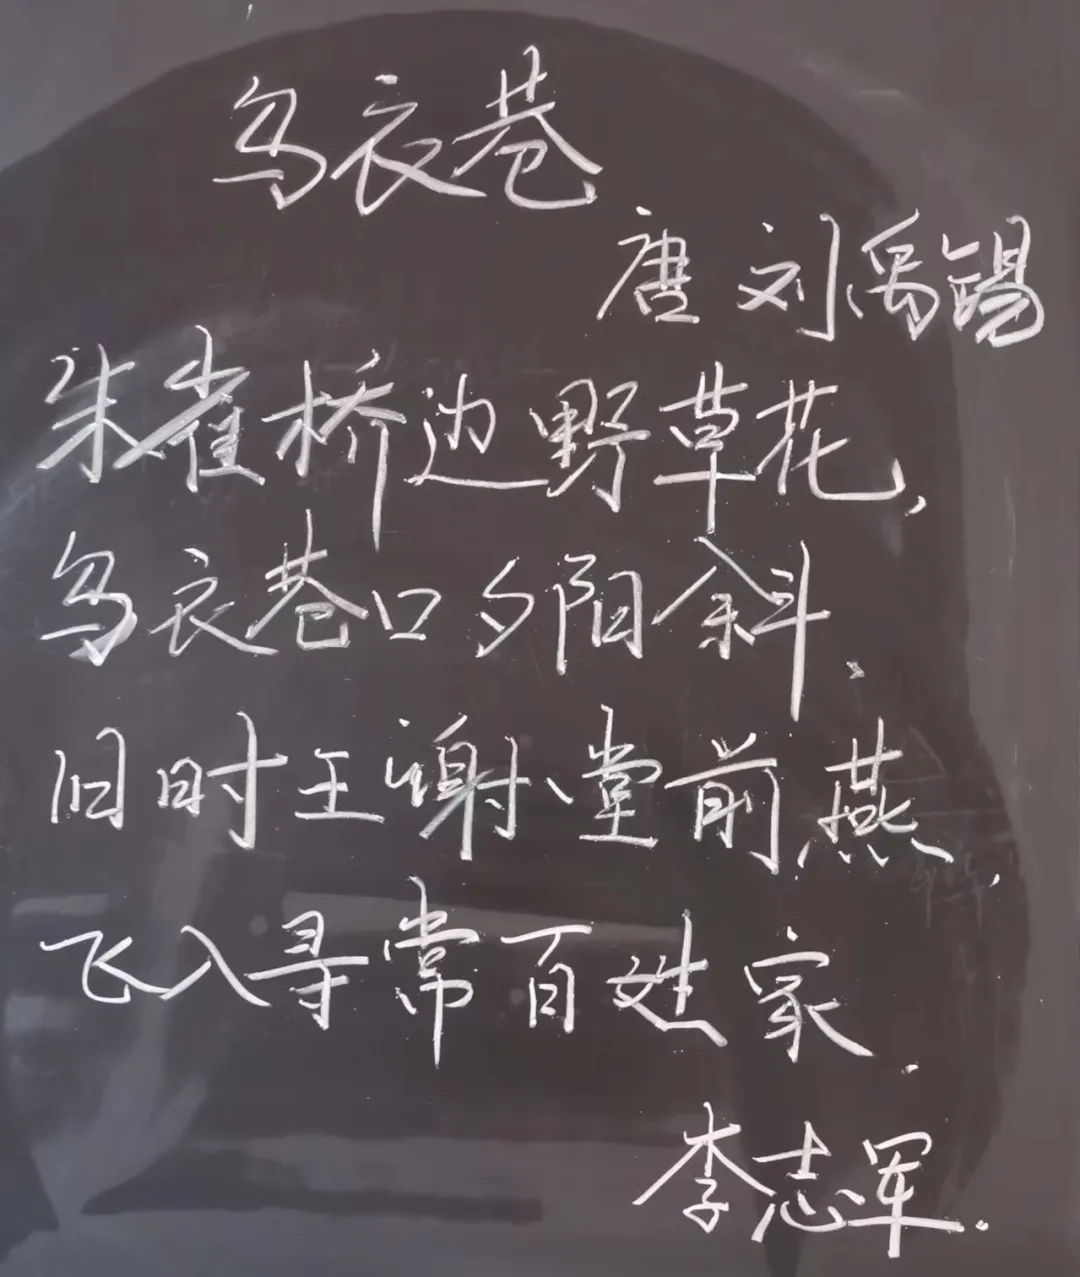 乌衣巷
唐 刘禹锡
朱雀桥边野草花,
乌衣巷口夕阳斜.
旧时王谢堂前燕,
飞入寻常百姓家.
李志军.